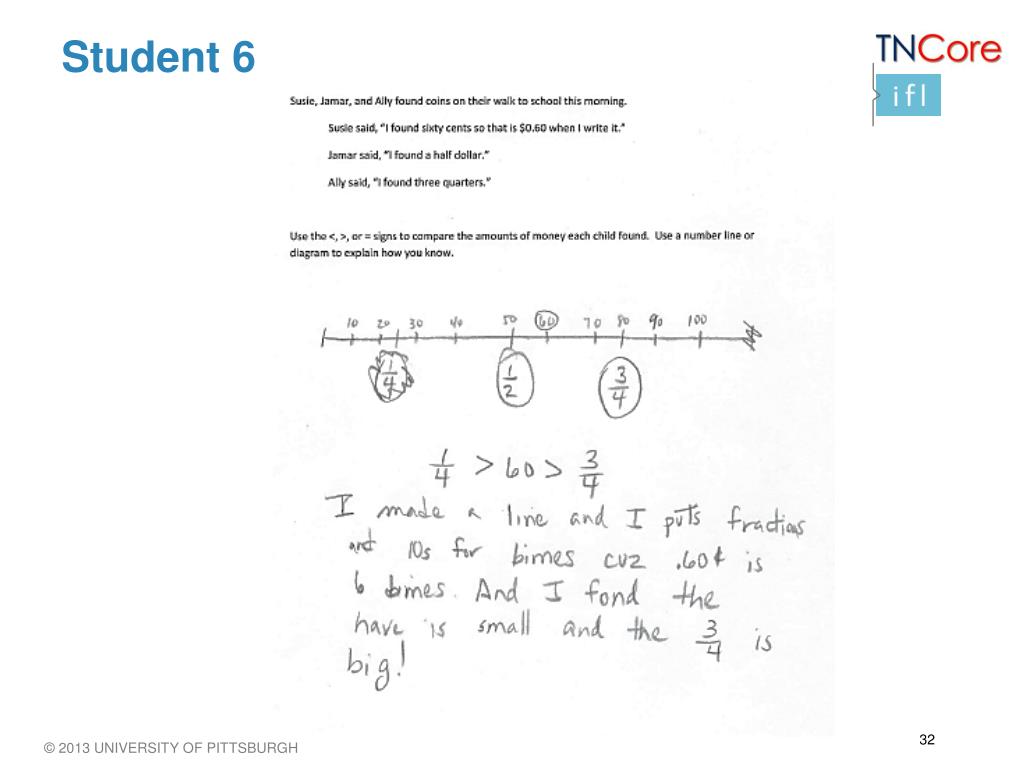 Student 6
TNCore
ifl
Susie, Jamar, and Ally found coins on their walk to school this morning.
Susie said, "I found sixty cents so that is $0.60 when I write it."
Jamar said, "I found a half dollar."
Ally said, "I found three quarters."
Use the <, >, or = signs to compare the amounts of money each child found. Use a number line or
diagram to explain how you know.
10 20 30 40 50 60 70 80 90 100
1/4 1/2 3/4
1/4 > 60 > 3/4
I made a line and I puts fractions
and 10s for bimes cuz .60¢ is
6 bimes. And I fond the
have is small and the 3/4 is
big!
© 2013 UNIVERSITY OF PITTSBURGH
32